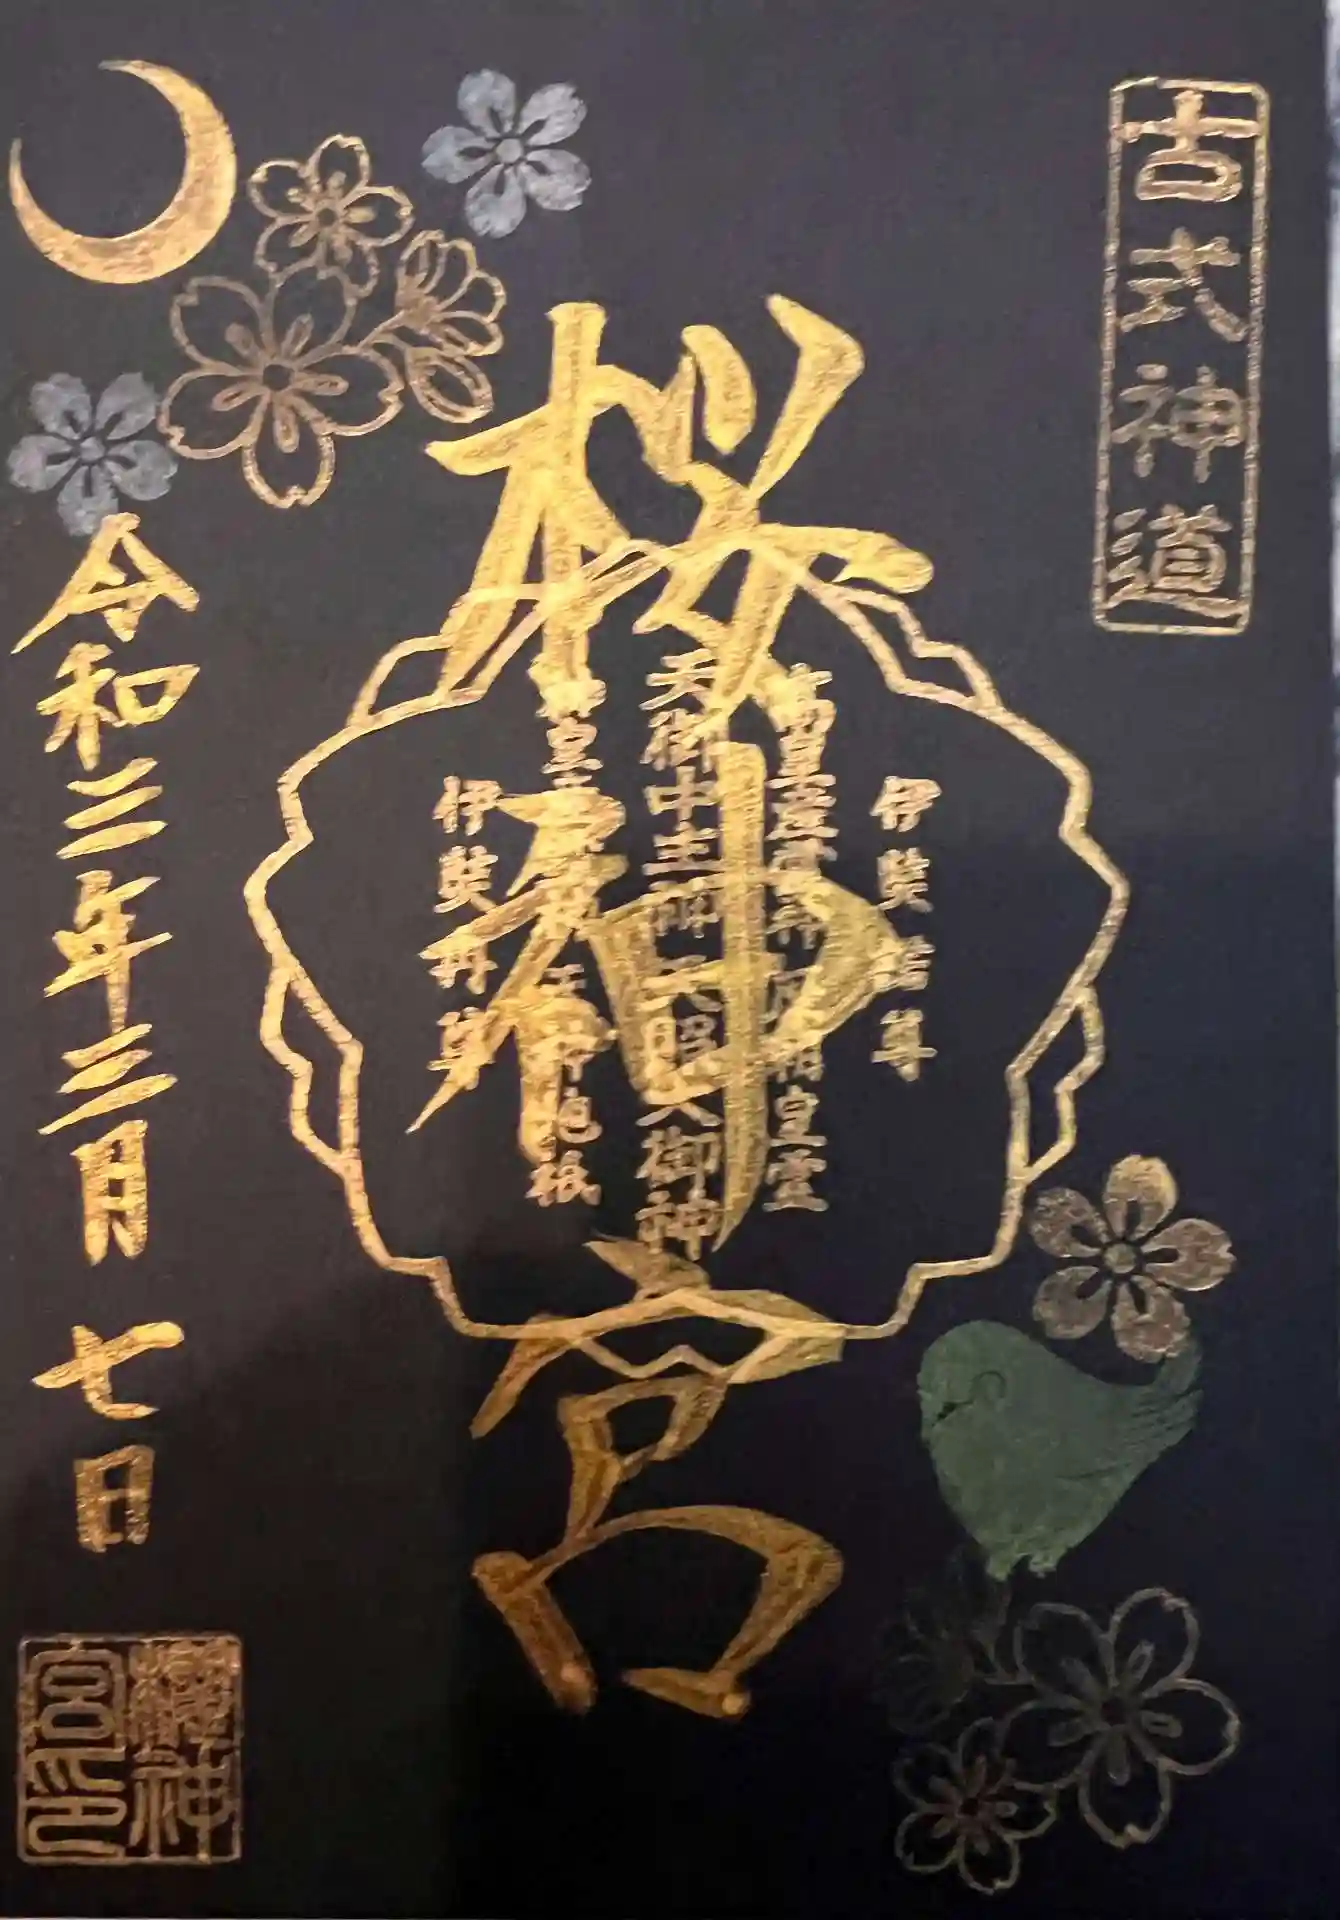 古式神道
桜神宮
伊奘諾尊
高皇産霊神 朝皇霊
天御中主神 天照大御神
神皇産霊神 天神地祇
伊奘冉尊
令和三年三月七日
櫻神
宮印